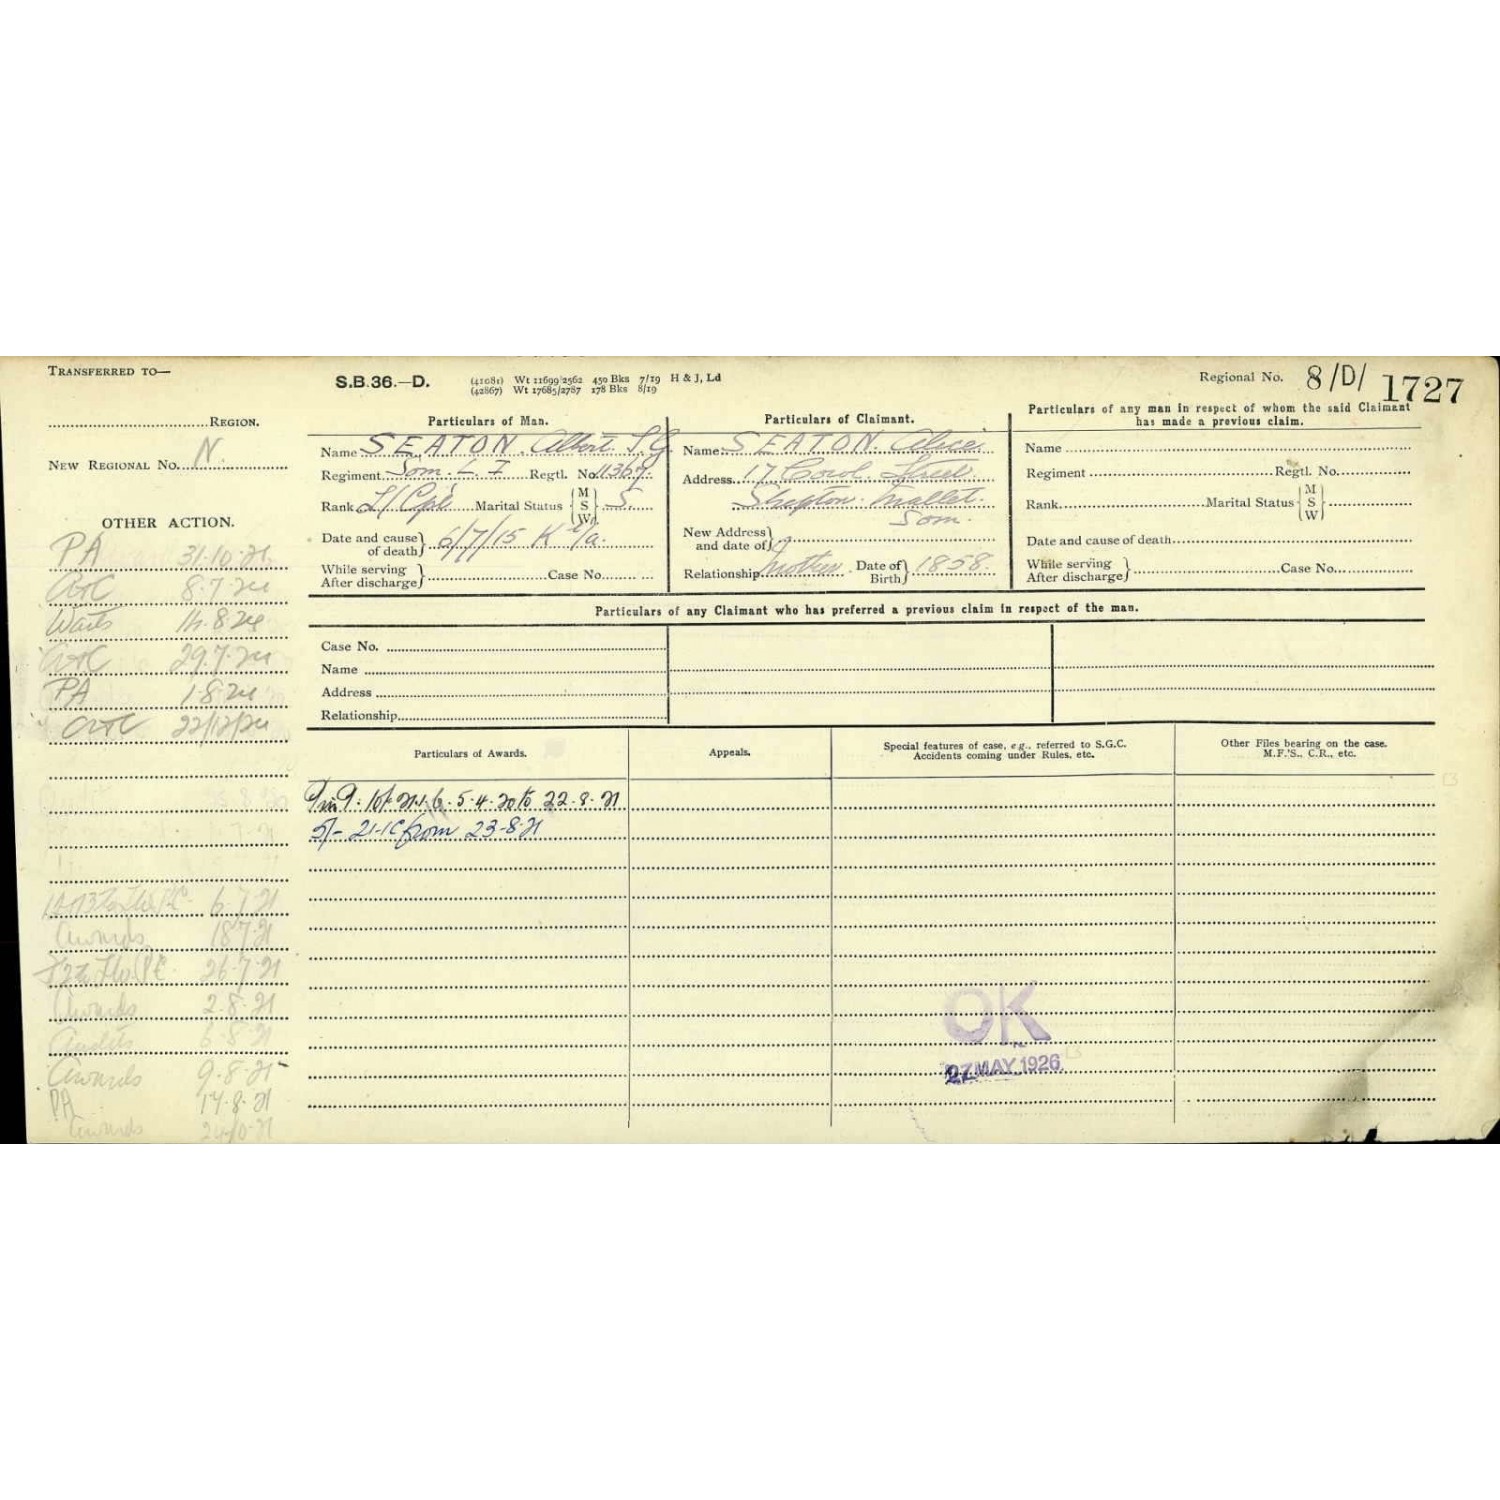 TRANSFERRED TO—
REGION.
NEW REGIONAL No. N.
OTHER ACTION.
PA 31.10.21
8.7.24
8.24
29.7.24
PA 1.8.24
22/12/24
6.7.21
Awards 18.7.21
26.7.21
Awards 2.8.21
Audits 6.8.21
Awards 9.8.21
PA 17.8.21
Awards
S.B. 36.—D.
(41081) Wt 11699/2562 450 Bks 7/19 H & J, Ld
(42867) Wt 17685/2787 178 Bks 8/19
Regional No. 8/D/ 1727
Particulars of Man.
Name SEATON. Albert
Regiment Som. L. I Regtl. No. 11367.
Rank L/Cpl Marital Status { M S W } S.
Date and cause of death } 6/7/15 K i/a.
While serving
After discharge } Case No.
Particulars of Claimant.
Name SEATON. Alice.
Address 17 Cowl Street.
Shepton Mallet.
Som.
New Address and date of }
Relationship Mother Date of Birth } 1858.
Particulars of any man in respect of whom the said Claimant
has made a previous claim.
Name
Regiment Regtl. No.
Rank Marital Status { M S W }
Date and cause of death
While serving
After discharge } Case No.
Particulars of any Claimant who has preferred a previous claim in respect of the man.
Case No.
Name
Address
Relationship
Particulars of Awards.
5.4.20 to 22.8.21
5/- 21-1C from 23-8-21
Appeals.
Special features of case, e.g., referred to S.G.C.
Accidents coming under Rules, etc.
OK
27 MAY 1926
Other Files bearing on the case.
M.F.'S., C.R., etc.